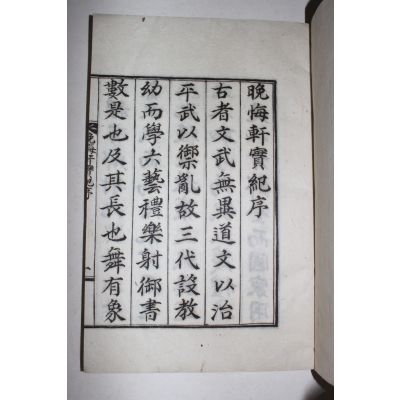 晩悔軒實紀序
古者文武無異道文以治
平武以禦亂故三代設教
幼而學六藝禮樂射御書
數是也及其長也舞有象
晩悔軒實紀序